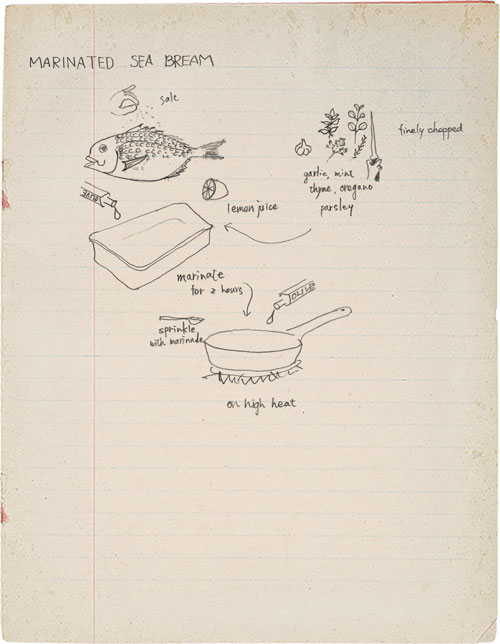 MARINATED SEA BREAM
salt
finely chopped
garlic, mint
thyme, oregano
parsley
lemon juice
marinate
for 2 hours
OLIVE
sprinkle
with marinade
on high heat